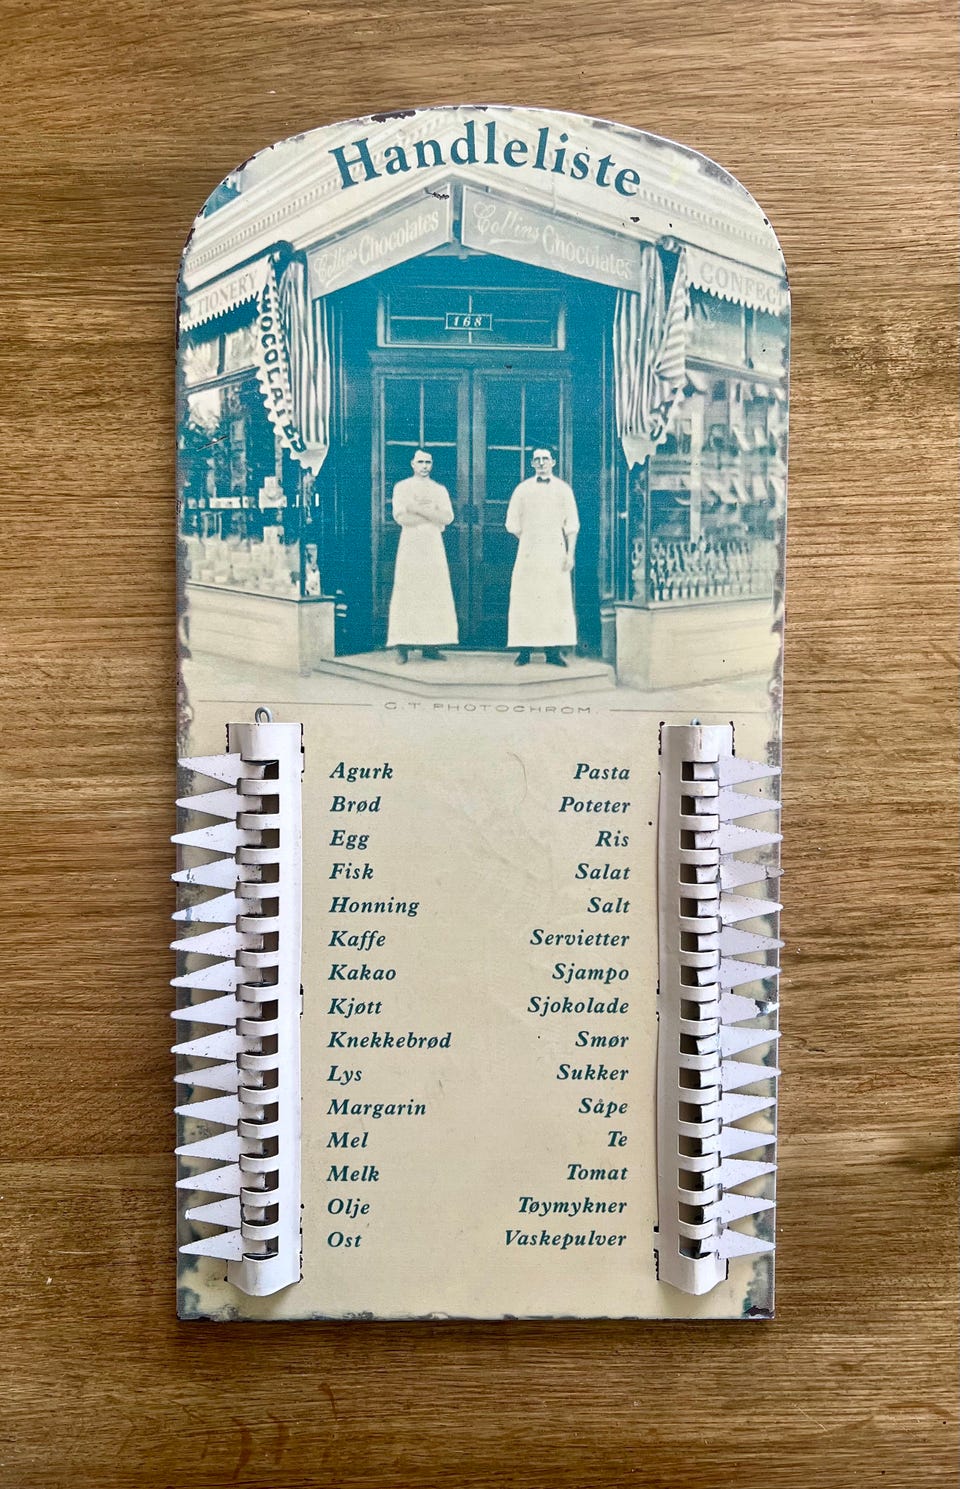 Handleliste
Collins Chocolates
Collins Chocolates
TIONERY
CONFECT
CHOCOLATES
168
C.T. PHOTOCHROM.
Agurk
Brød
Egg
Fisk
Honning
Kaffe
Kakao
Kjøtt
Knekkebrød
Lys
Margarin
Mel
Melk
Olje
Ost
Pasta
Poteter
Ris
Salat
Salt
Servietter
Sjampo
Sjokolade
Smør
Sukker
Såpe
Te
Tomat
Tøymykner
Vaskepulver